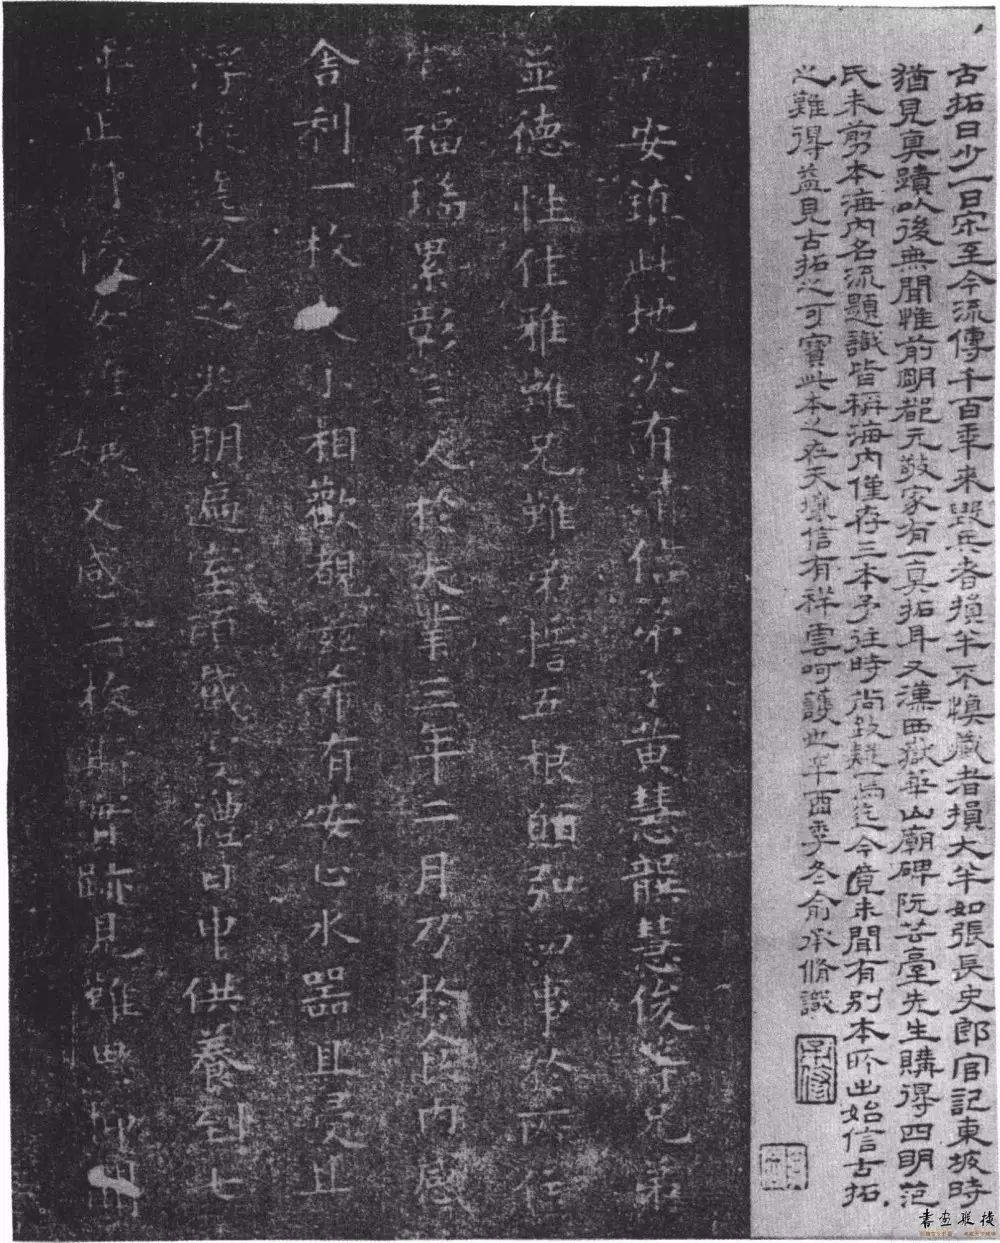 古拓日少一日宋至今流傳千百年來毀兵者損半不慎藏者損大半如張長史郎官記東坡時
猶見真蹟以後無聞惟前明都元敬家有一真拓耳又漢西嶽華山廟碑阮芸臺先生購得四明范
氏未剪本海内名流題識皆稱海内僅存三本予往時尚致疑焉迄今竟未聞有別本所出始信古拓
之難得益見古拓之可寶此本之在天壤信有祥雲呵護也辛酉季冬俞承脩識
安鎮此地次有清信弟子黃慧龍慧俊等兄弟
並德性佳雅難兄難弟憺五根 弘四事於所住
宅福瑞累彰云及於大業三年二月乃於食内感
舍利一枚 大小相歡覩玆希有安心水器且浮且
浮從是久之兆朋遍室而感之禮日中供養到七
年正月 又感一枚斯 跡見雖 即
書画聯接